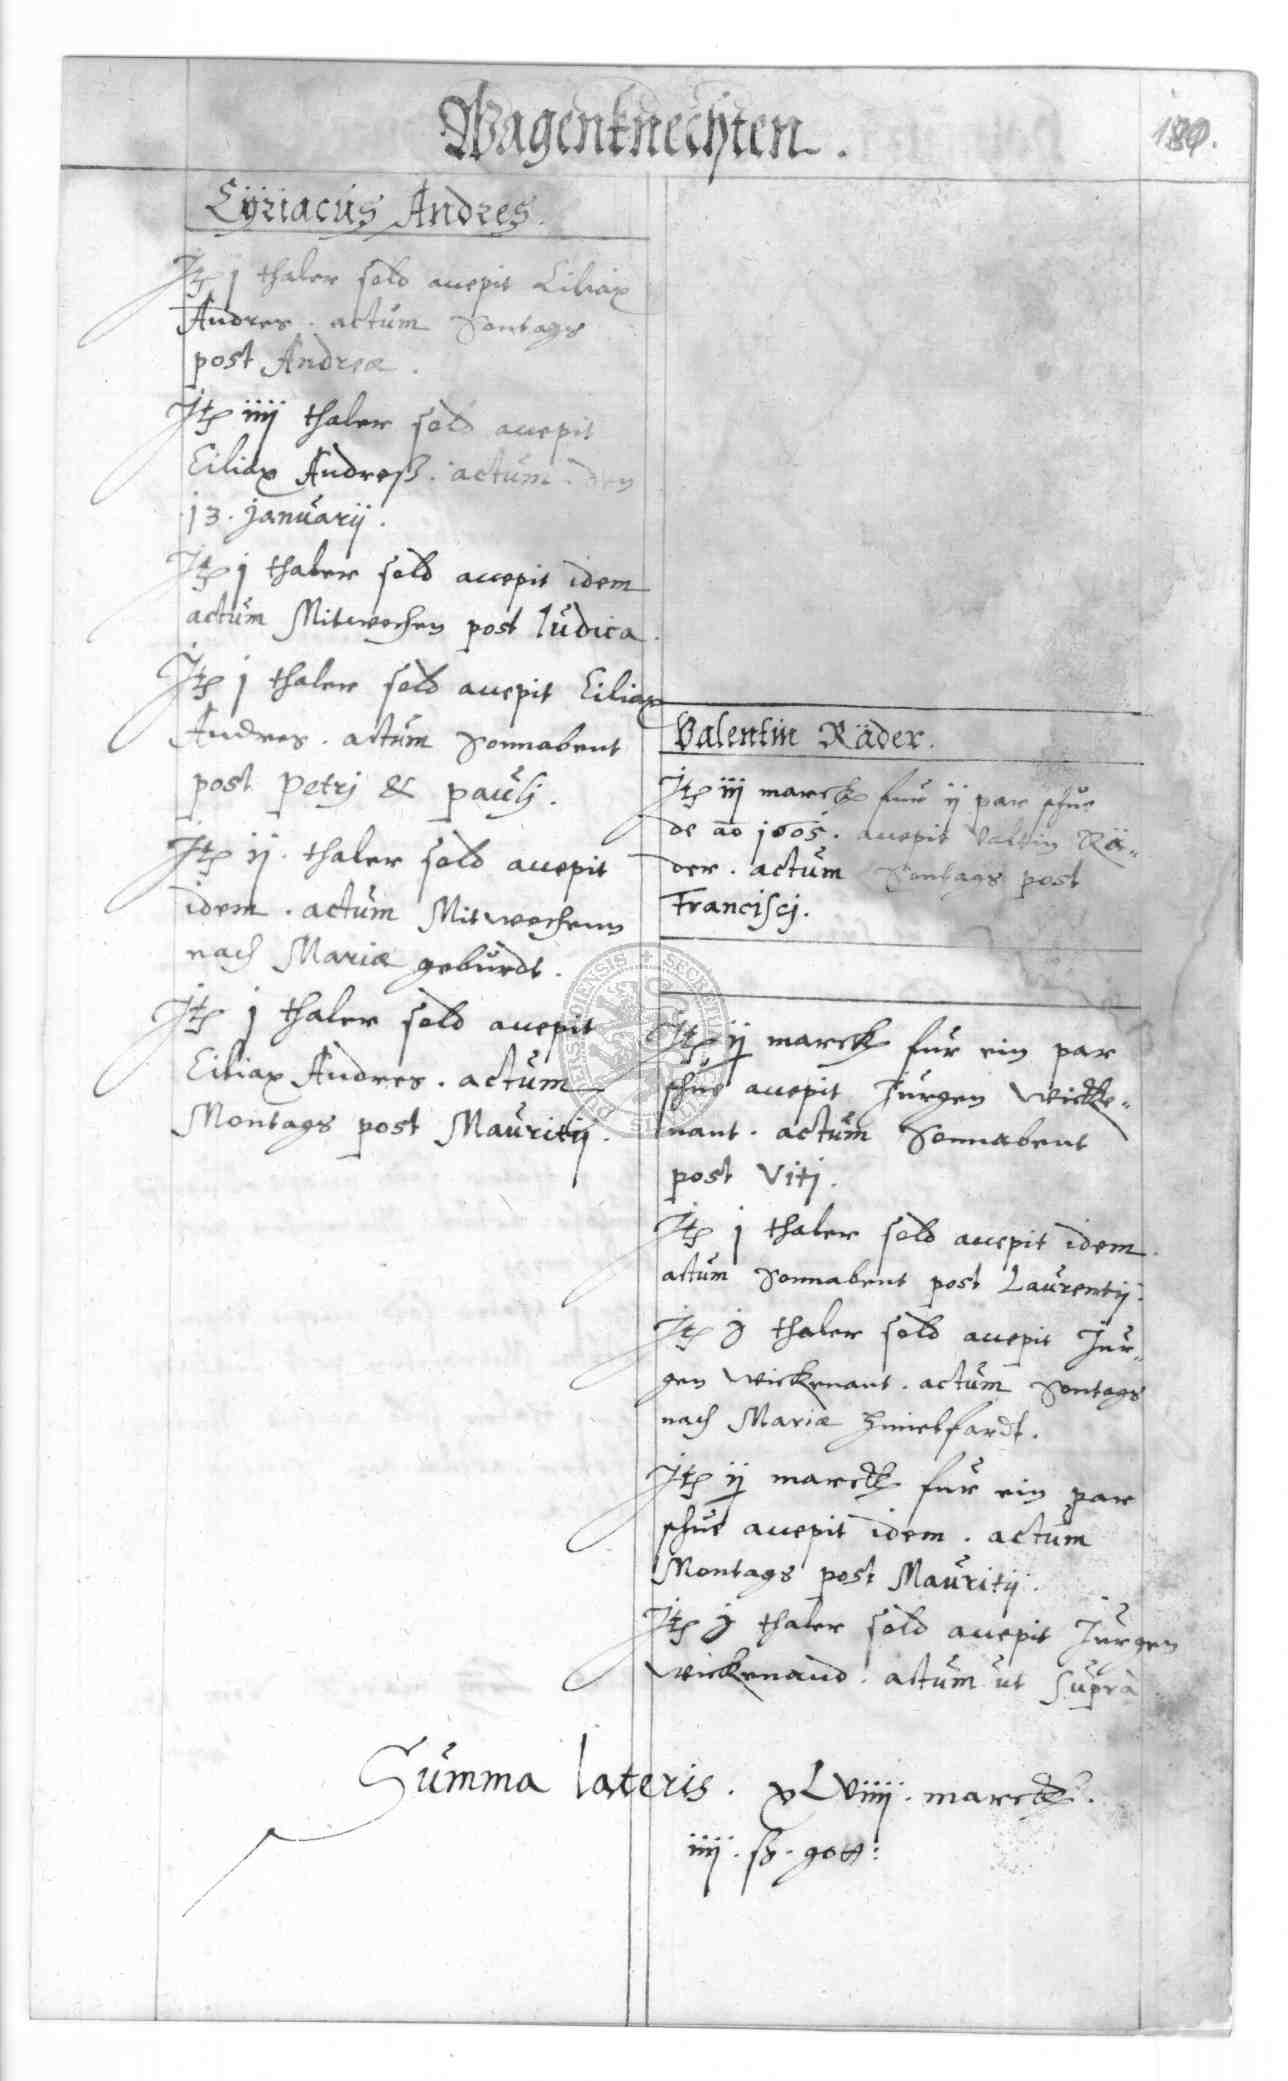 Wagenknechten.
180.
Cÿriacus Andres.
Jtē j thaler sold accepit Ciliax
Andres. actum Sontags
post Andreæ.
Jtē iiij thaler sold accepit
Ciliax Andreß. actum den
13. januarij.
Jtē j thaler sold accepit idem
actum Mitwochen post Iudica.
Jtē j thaler sold accepit Ciliax
Andres. actum Sonnabent
post Petrj & paulj.
Jtē ij. thaler sold accepit
idem. actum Mitwochenn
nach Mariæ geburdt.
Jtē j thaler sold accepit
Ciliax Andres. actum
Montags post Mauritij.
Valentin Räder.
Jtē iij marck fur ij par schue
de ao 1605. accepit Valtin Rä-
der. actum Sontags post
Franciscj.
Jtē ij marck fur ein par
schue accepit Jurgen Wicke-
nant. actum Sonnabent
post Vitj.
Jtē j thaler sold accepit idem.
actum Sonnabent post Laurentij.
Jtē j thaler sold accepit Jur-
gen Wickenant. actum Sontags
nach Mariæ himelfardt.
Jtē ij marck fur ein par
schue accepit idem. actum
Montags post Mauritij.
Jtē j thaler sold accepit Jurgen
Wickenand. actum ut supra
Summa lateris. xLviiij. marck.
iiij. ß. gott: